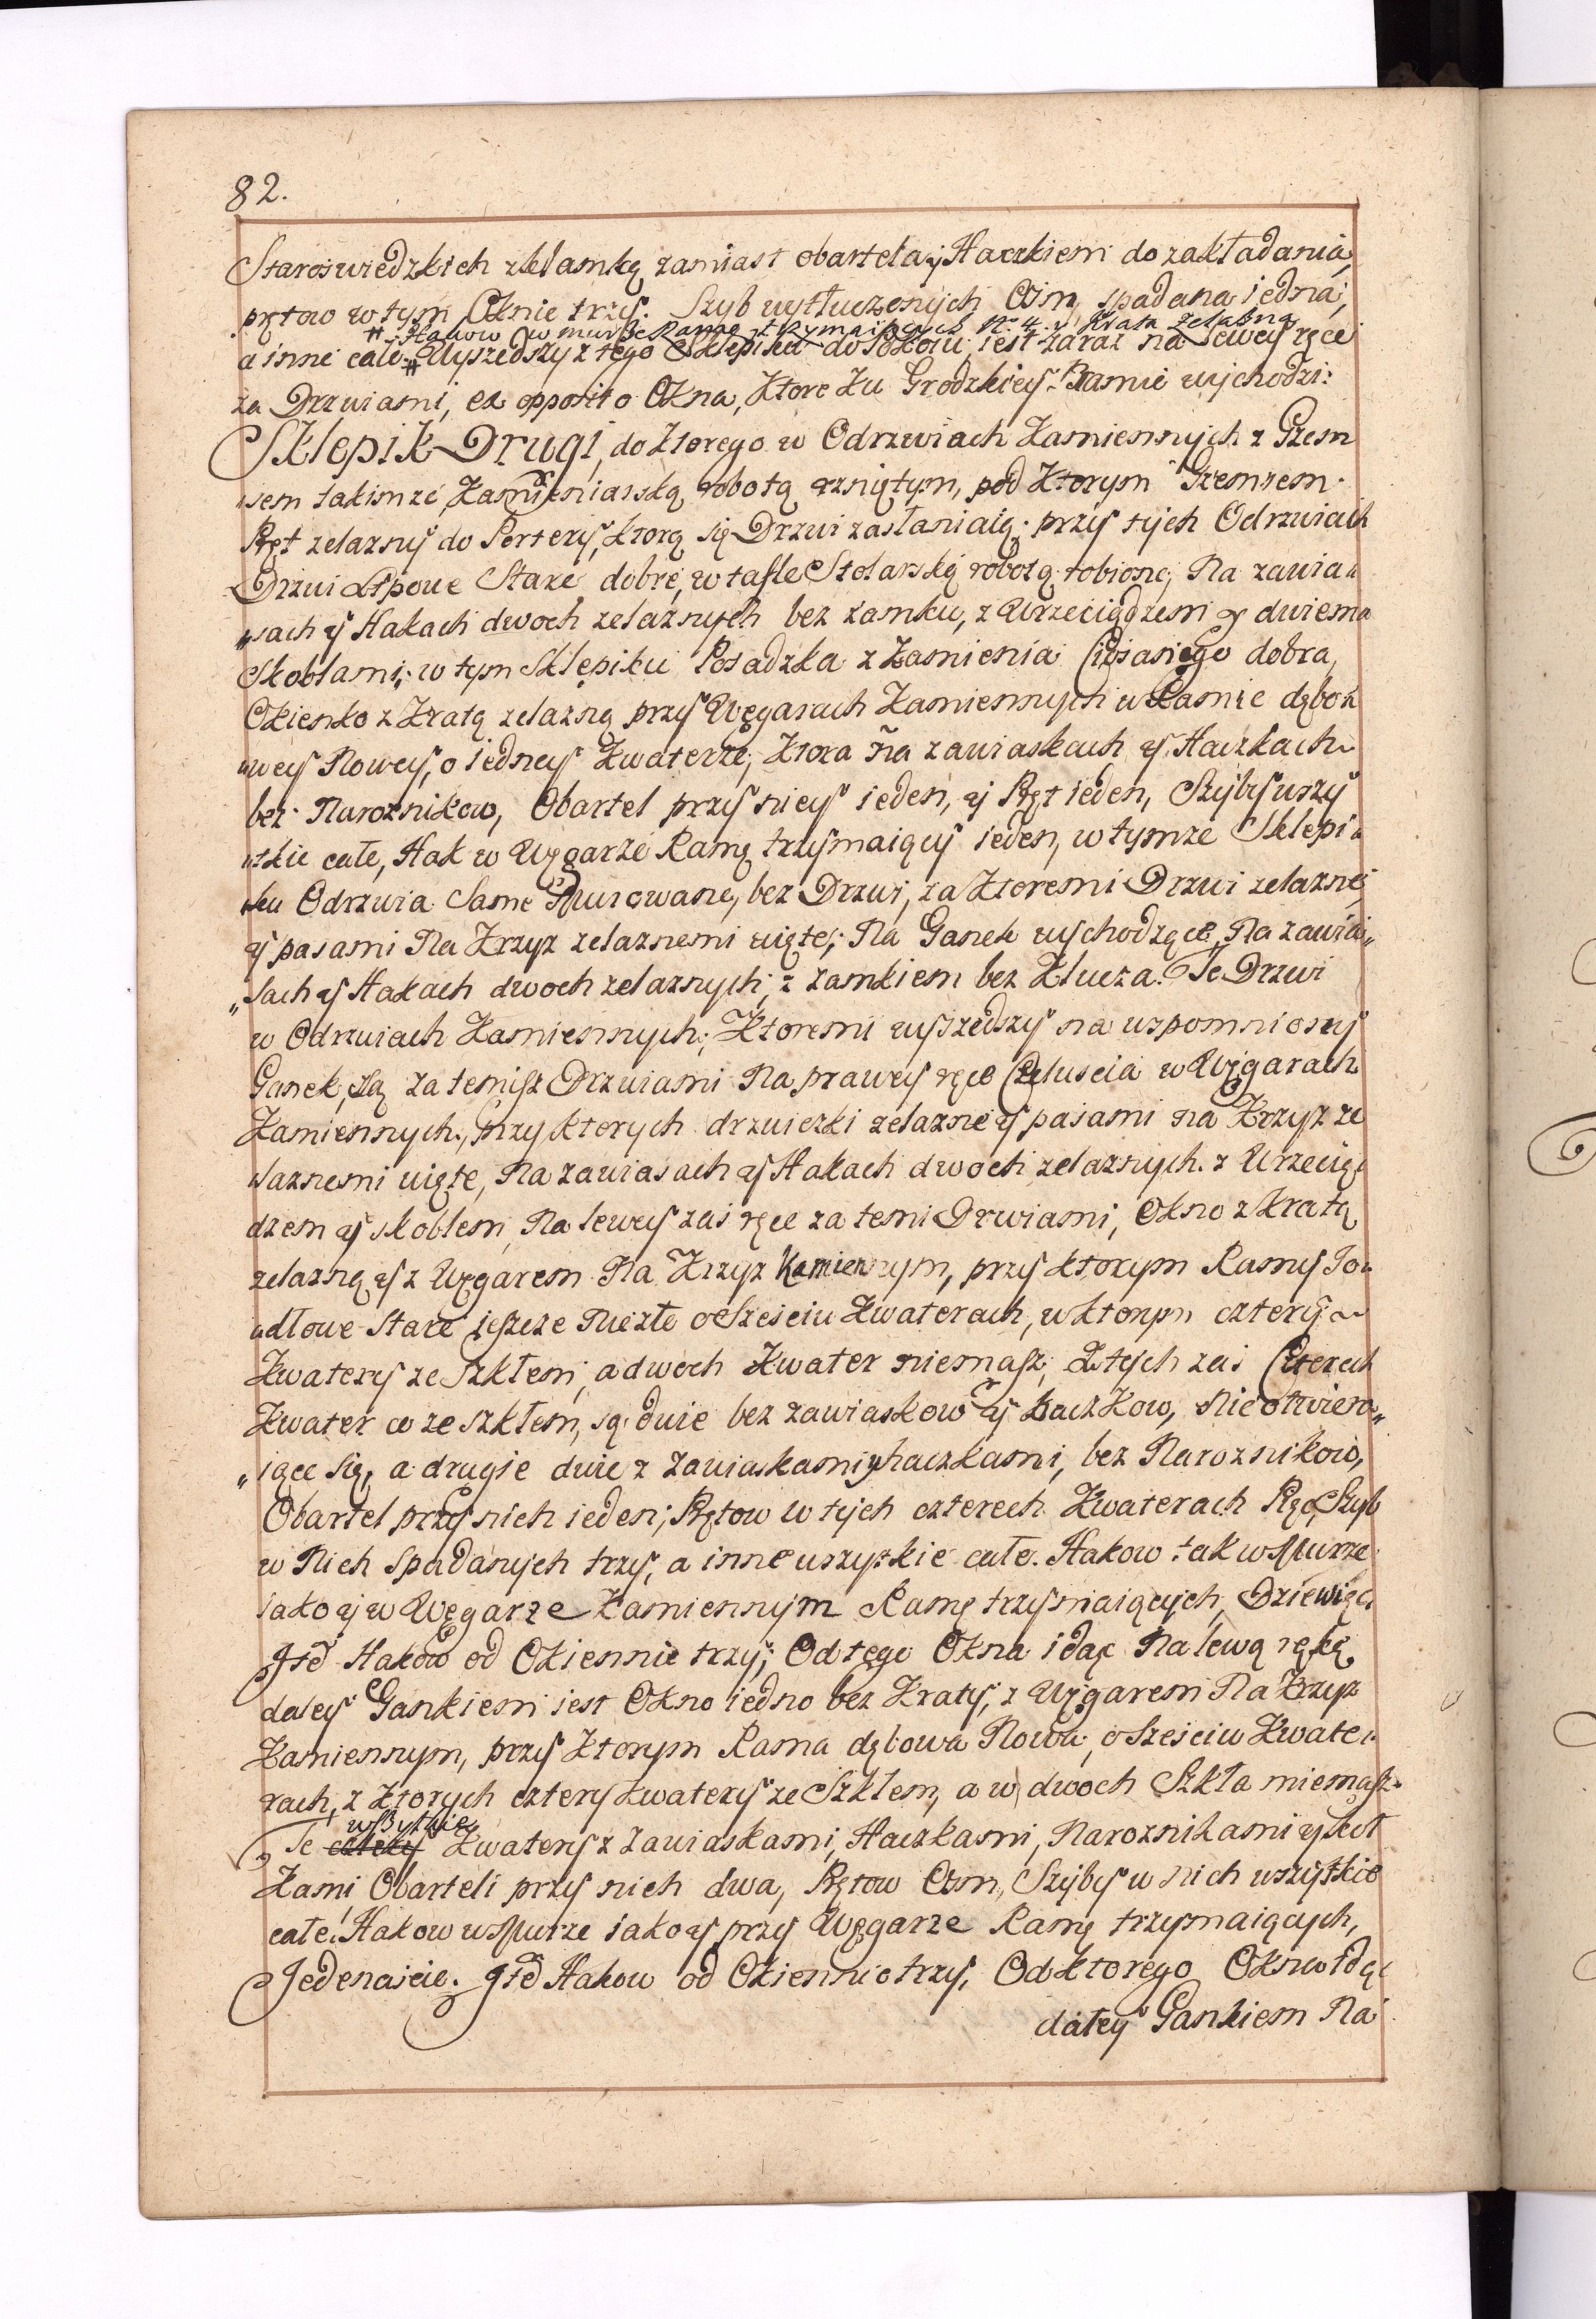 82.
Staroswiedzkich z klamką zamiast obartela ÿ Haczkiem do zakładania,
prętow w tym Oknie trzÿ. Szyb wytłuczonÿch Osm, spadana iedna,
# Hakow w murze Ramę trzymaiących No 4. y Krata żelazna
a inne całe. # Wyszedszy z tego Sklepiku do Pokoiu iest zaraz na Lewey ręce
za Drzwiami, ex opposito Okna, Ktore Ku Grodzkieÿ Bramie wÿchodzi:
Sklepik Drugi, do Ktorego w Odrzwiach Kamiennÿch z Gzem
"sem takimże Kamieniarską robotą rzniętym, pod Ktorym Gzemsem
Pręt zelaznÿ do Porterÿ, Ktorą się Drzwi zasłaniaią; przÿ tÿch Odrzwiach
Drzwi Lipowe Stare dobre, w tafle Stolarską robotą robione, Na zawia"
"sach ÿ Hakach dwoch zelaznÿch bez zamku, z Wrzeciądzem y dwiema
Skoblami; w tym Sklepiku Posadzka z Kamienia Ciosanego dobra,
Okienko z Kratą zelazną przÿ Węgarach Kamiennÿch w Ramie dębo"
"weÿ Noweÿ, o iedneÿ Kwaterze, Ktora na zawiaskach ÿ Haczkach
bez Naroznikow, Obartel przÿ nieÿ ieden, ÿ Pręt ieden, Szÿbÿ wszÿ
"stkie całe, Hak w Węgarze Ramę trzÿmaiącÿ ieden, w tÿmze Sklepi"
"ku Odrzwia Same Murowane, bez Drzwi, za Ktoremi Drzwi zelazne,
ÿ pasami Na Krzyz zelaznemi więte; Na Ganek wÿchodzące, Na zawia"
"sach ÿ Hakach dwoch zelaznÿch, z zamkiem bez Klucza. Te Drzwi
w Odrzwiach Kamiennÿch; Ktoremi wÿszedszÿ na wspomnionÿ
Ganek, są za temisz Drzwiami Na praweÿ ręce Czeluscia w Węgarach
Kamiennych, przy Ktorych drzwiczki zelazne ÿ pasami na Krzyz ze
laznemi więte, Na zawiasach ÿ Hakach dwoch zelaznych z Wrzecią
dzem ÿ skoblem, Na leweÿ zas ręce za temi Drwiami, Okno z Kratą
zelazną ÿ z Węgarem Na Krzyz Kamiennym, przÿ Ktorym Ramÿ Jo"
"dłowe Stare ieszcze Niezłe o Szesciu Kwaterach, w Ktorym czterÿ
Kwaterÿ ze Szkłem, a dwoch Kwater niemasz, Z tÿch zas Czterech
Kwater co ze szkłem, są dwie bez zawiaskow ÿ haczkow, nie otwiera"
"iące się, a drugie dwie z zawiaskami y haczkami, bez Naroznikow,
Obartel przÿ nich ieden; Prętow w tÿch czterech Kwaterach Pięc, Szyb
w Nich Spadanÿch trzÿ, a inne wszystkie całe. Hakow tak w Murze
iako ÿ w Węgarze Kamiennÿm Ramę trzÿmaiącÿch, Dziewięc.
Itd Hakow od Okiennic trzÿ; Od tego Okna idąc Na lewą rękę
daleÿ Gankiem iest Okno iedno bez Kratÿ, z Węgarem Na Krzyz
Kamiennym, przÿ Ktorym Rama dębowa Nowa, o Szesciu Kwate"
rach, z Ktorych czterÿ Kwaterÿ ze Szkłem, a w dwoch Szkła niemasz.
wszytkie
Te czterÿ Kwaterÿ z zawiaskami, Haczkami, Naroznikami ÿ Koł
Kami, Obarteli przÿ nich dwa, Prętow Osm, Szÿbÿ w nich wszÿstkie
całe. Hakow w Murze iako ÿ przÿ Węgarze Ramę trzÿmaiącÿch,
Jedenascie. Itd Hakow od Okiennic trzÿ, Od Ktorego Okna Idąc
daleÿ Gankiem Na